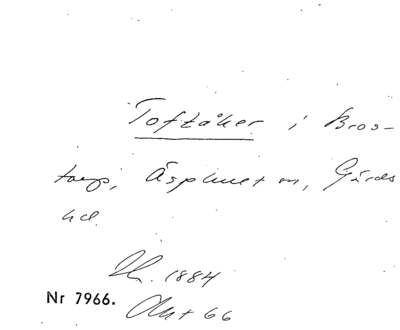 Toftåker i Bros-
torp, Äsphult sn, Gärds
hd.
Lh. 1884
Nr 7966.
Akt 66